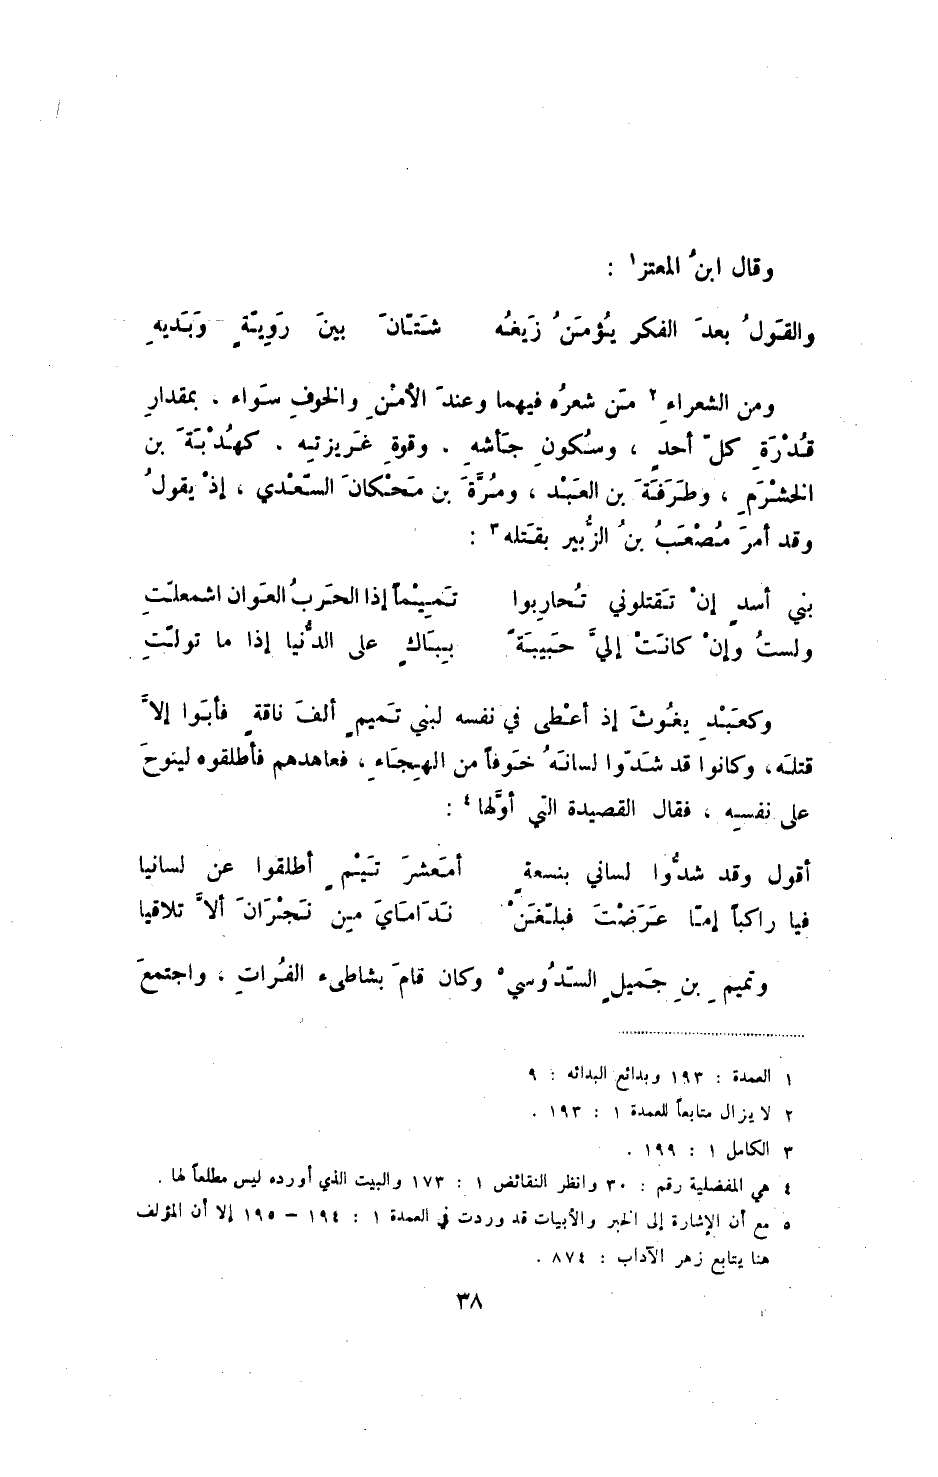 وقال ابنُ المعتز١ :
والقَولُ بعدَ الفكر يُؤمَنُ زَيغُه شَتّانَ بينَ رَويّةٍ وَبَديهِ
ومن الشعراءِ٢ مَن شعرُه فيهما وعندَ الأمْنِ والخوفِ سَواء . بمقدارِ
قُدْرَةِ كلّ أحدٍ ، وسُكونِ جَأشه . وقوةِ غَريزتِه . كهُدْبَةَ بن
الخشْرَمِ ، وطَرَفَةَ بن العَبْد ، ومُرَّةَ بن مَحْكانَ السّعْدي ، إذْ يقولُ
وقد أمرَ مُصْعَبُ بنُ الزُّبير بقَتله٣ :
بني أسدٍ إنْ تَقتلوني تُحاربوا تَميْماً إذا الحَربُ العَوان اشمعلّتِ
ولستُ وإنْ كانَتْ إليَّ حَبيبَةً بِباكٍ على الدُّنيا إذا ما تولّتِ
وكعَبْدِ يغُوثَ إذ أعْطى في نفسه لبني تَميمٍ ألفَ ناقةٍ فأبَوا إلاَّ
قتلَه ، وكانوا قد شَدّوا لسانَهُ خَوفاً من الهِجَاءِ ، فعاهدهم فأطلقوه لينوحَ
على نفسِه ، فقال القصيدة التي أوَّلها٤ :
أقول وقد شدُّوا لساني بنسعةٍ أمَعشرَ تَيْمٍ أطلقوا عن لسانيا
فيا راكباً إمّا عَرَضْتَ فبلّغَنْ نَدَامَايَ مِن نَجْرَانَ ألاَّ تلاقيا
وتميمِ بنِ جَميلٍ السّدُوسي٥ وكان قامَ بشاطىء الفُراتِ ، واجتمعَ
١ العمدة : ١٩٣ وبدائع البدائه : ٩
٢ لا يزال متابعاً للعمدة ١ : ١٩٣ .
٣ الكامل ١ : ١٩٩ .
٤ هي المفضلية رقم : ٣٠ وانظر النقائض ١ : ١٧٣ والبيت الذي أورده ليس مطلعاً لها .
٥ مع أن الإشارة إلى الخبر والأبيات قد وردت في العمدة ١ : ١٩٤ – ١٩٥ إلا أن المؤلف
هنا يتابع زهر الآداب : ٨٧٤ .
٣٨